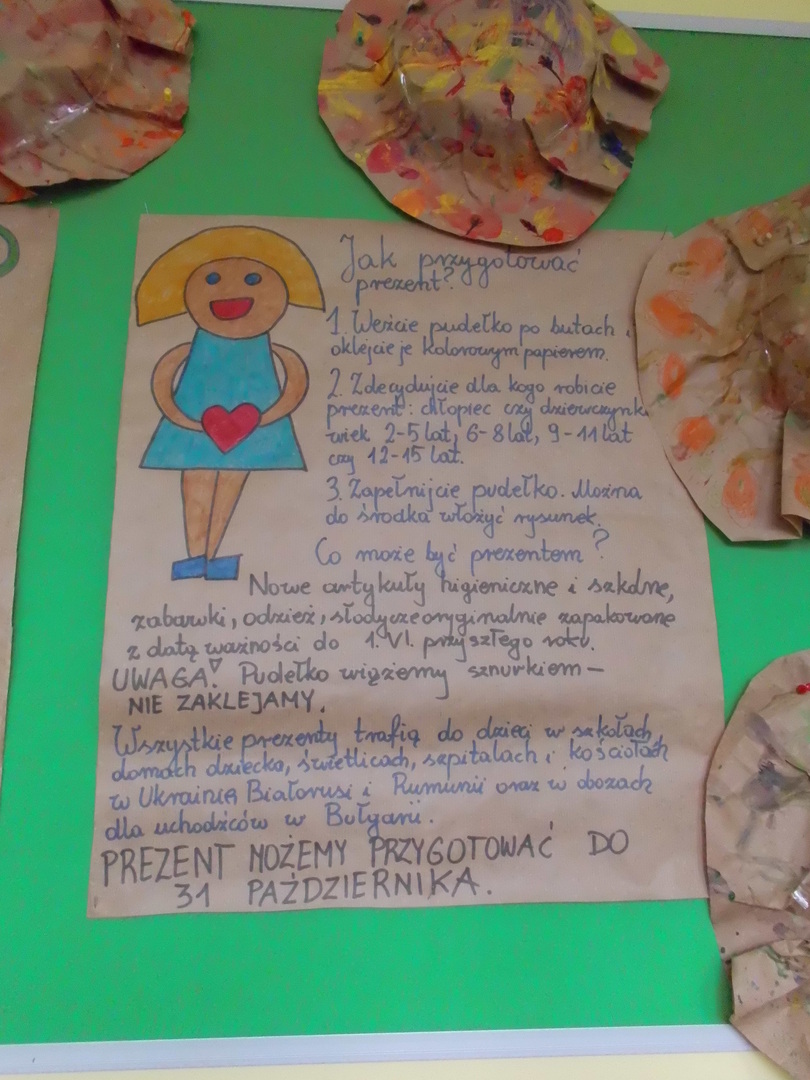 Jak przygotować
prezent?
1. Weźcie pudełko po butach i
oklejcie je kolorowym papierem.
2. Zdecydujcie dla kogo robicie
prezent: chłopiec czy dziewczynk
wiek 2-5 lat, 6-8 lat, 9-11 lat
czy 12-15 lat.
3. Zapełnijcie pudełko. Można
do środka włożyć rysunek.
Co może być prezentem?
Nowe artykuły higieniczne i szkolne,
zabawki, odzież, słodycze oryginalnie zapakowane
z datą ważności do 1. VI. przyszłego roku.
UWAGA! Pudełko wiążemy sznurkiem –
NIE ZAKLEJAMY.
Wszystkie prezenty trafią do dzieci w szkołach,
domach dziecka, świetlicach, szpitalach i kościołach
w Ukrainie Białorusi i Rumunii oraz w obozach
dla uchodźców w Bułgarii.
PREZENT MOŻEMY PRZYGOTOWAĆ DO
31 PAŹDZIERNIKA.